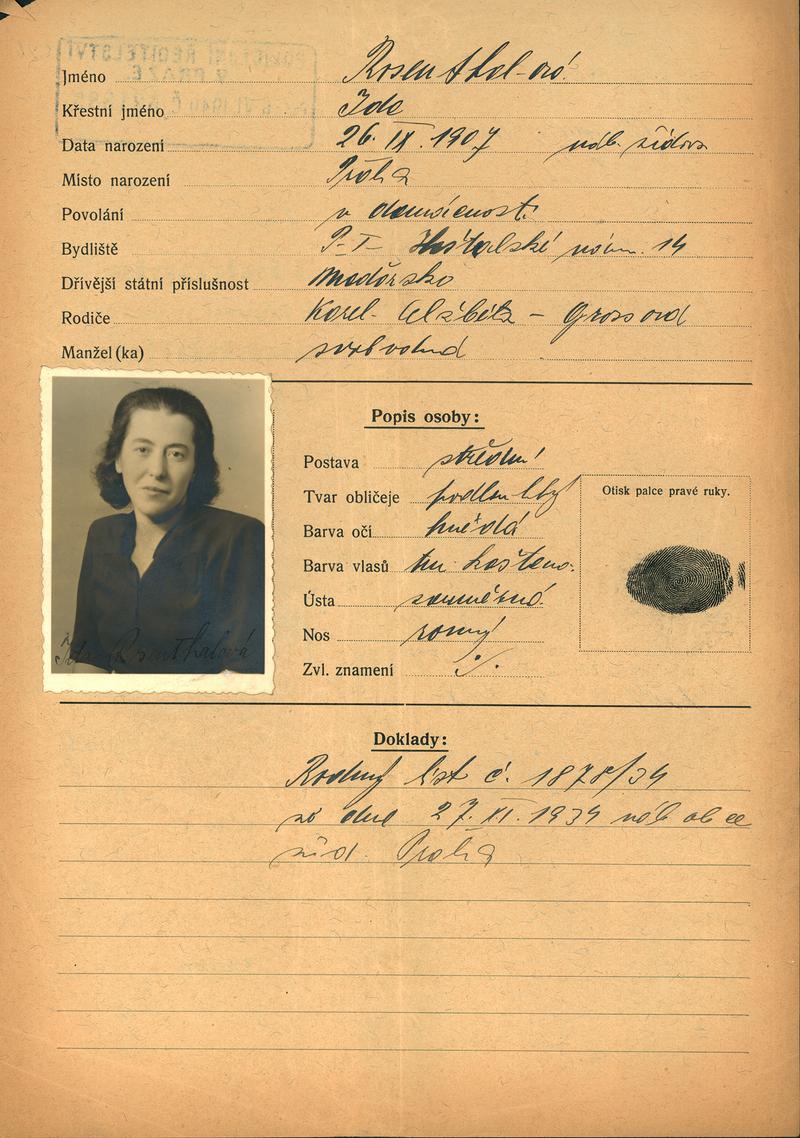 POLICEJNÍ ŘEDITELSTVÍ
V PRAZE
Jméno Rosenthal-ová
Křestní jméno Ida
Data narození 26. IX. 1907 náb. židov.
Místo narození Praha
Povolání v domácnosti
Bydliště P-I- Haštalské nám. 14
Dřívější státní příslušnost Maďarsko
Rodiče Karel - Alžběta - Grossová
Manžel(ka) svobodná
Popis osoby:
Postava střední
Tvar obličeje podlouhlý
Barva očí hnědá
Barva vlasů tm. kaštan.
Ústa souměrná
Nos rovný
Zvl. znamení ./.
Otisk palce pravé ruky.
Ida Rosenthalová
Doklady:
Rodný list č. 1878/34
ze dne 27. XI. 1934 náb obce
žid. Praha